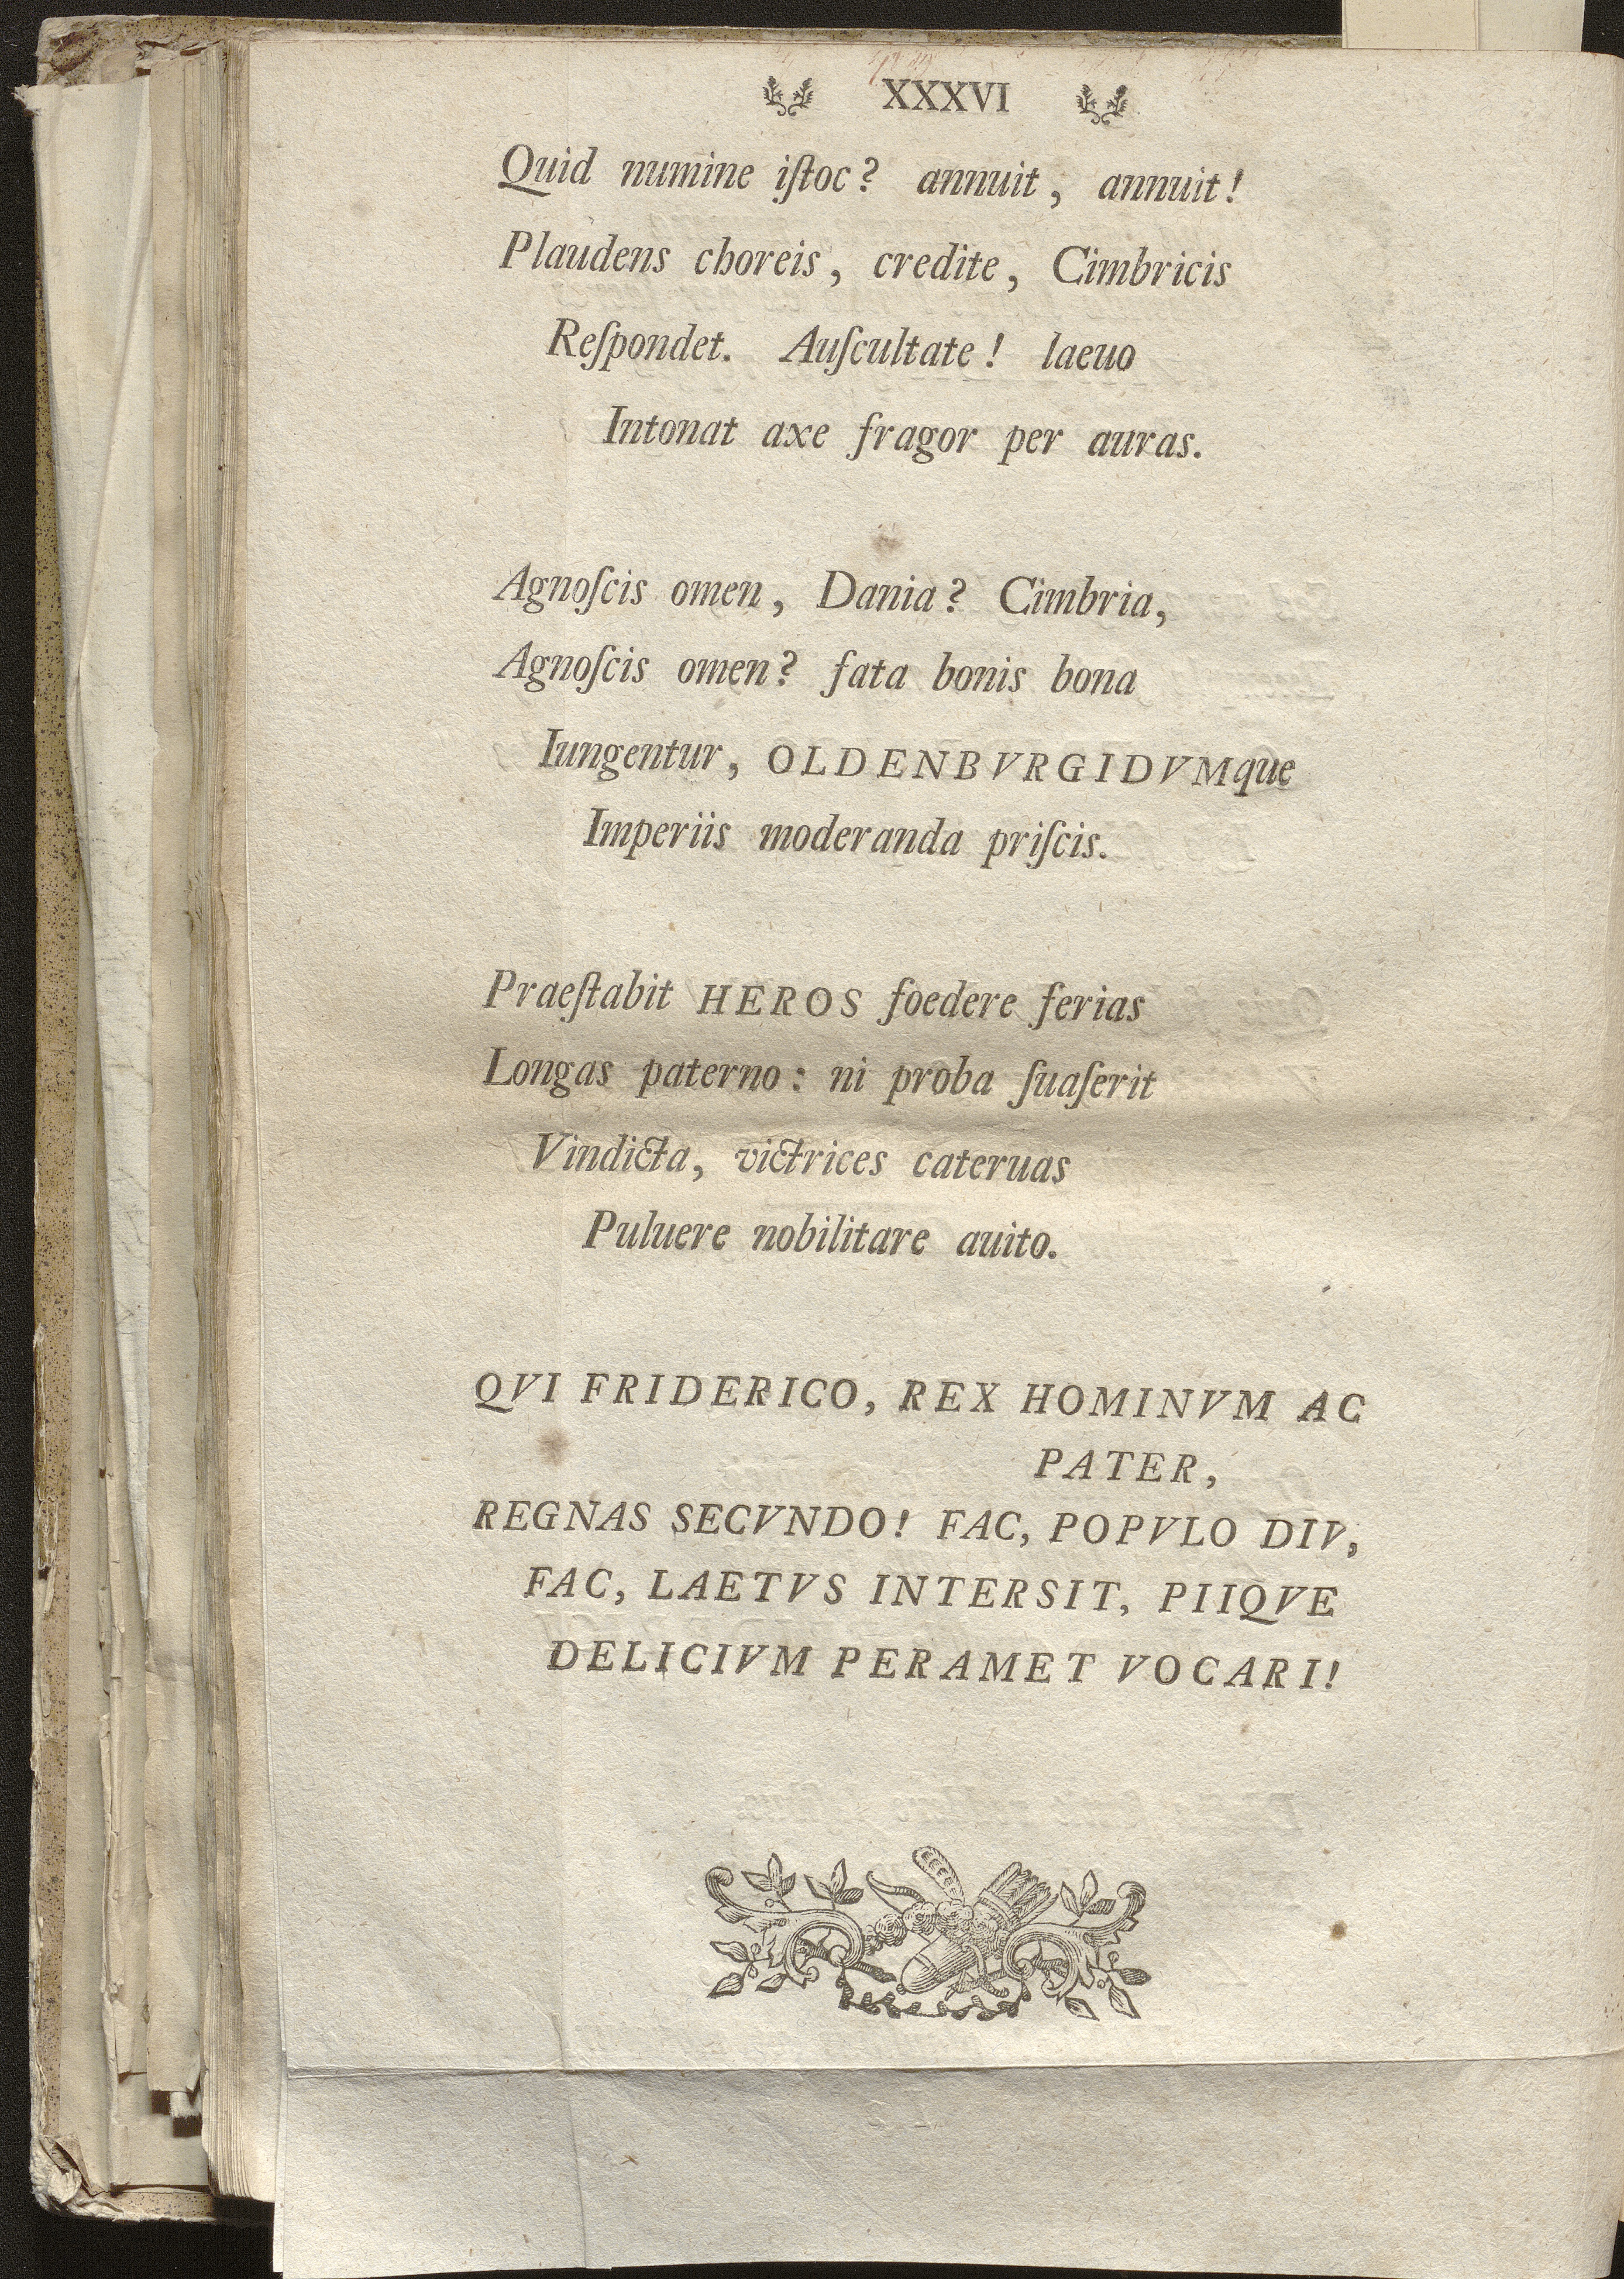 XXXVI
Quid numine iſtoc? annuit, annuit!
Plaudens choreis, credite, Cimbricis
Reſpondet. Auſcultate! laeuo
Intonat axe fragor per auras.
Agnoſcis omen, Dania? Cimbria,
Agnoſcis omen? fata bonis bona
Iungentur, OLDENBVRGIDVMque
Imperiis moderanda priſcis.
Praeſtabit HEROS foedere ferias
Longas paterno: ni proba ſuaſerit
Vindicta, victrices cateruas
Puluere nobilitare auito.
QVI FRIDERICO, REX HOMINVM AC
PATER,
REGNAS SECVNDO! FAC, POPVLO DIV,
FAC, LAETVS INTERSIT, PIIQVE
DELICIVM PERAMET VOCARI!